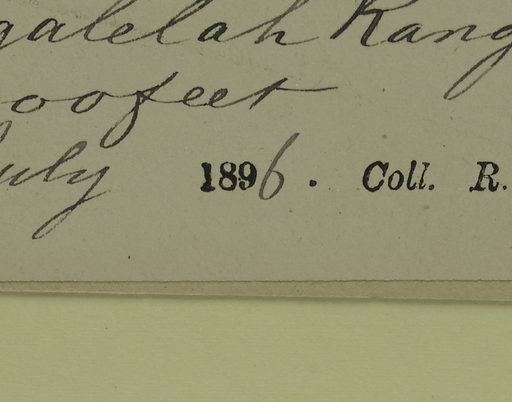 galelah Rang
oofeet
July 1896. Coll. R.